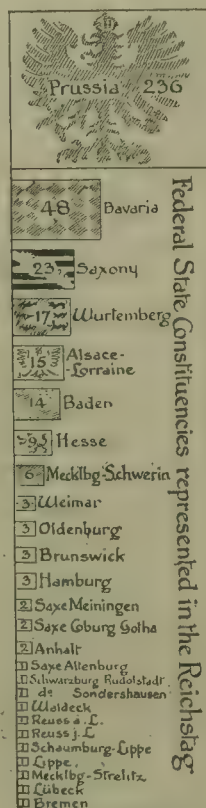 Prussia 236
48 Bavaria
23 Saxony
17 Wurtemberg
15 Alsace-
-Lorraine
14 Baden
9 Hesse
6 Mecklbg-Schwerin
3 Weimar
3 Oldenburg
3 Brunswick
3 Hamburg
2 Saxe Meiningen
2 Saxe Coburg Gotha
2 Anhalt
1 Saxe Altenburg
1 Schwarzburg Rudolstadt
1 do Sondershausen
1 Waldeck
1 Reuss a. L.
1 Reuss j. L.
1 Schaumburg-Lippe
1 Lippe.
1 Mecklbg-Strelitz
1 Lübeck
1 Bremen
Federal State Constituencies represented in the Reichstag